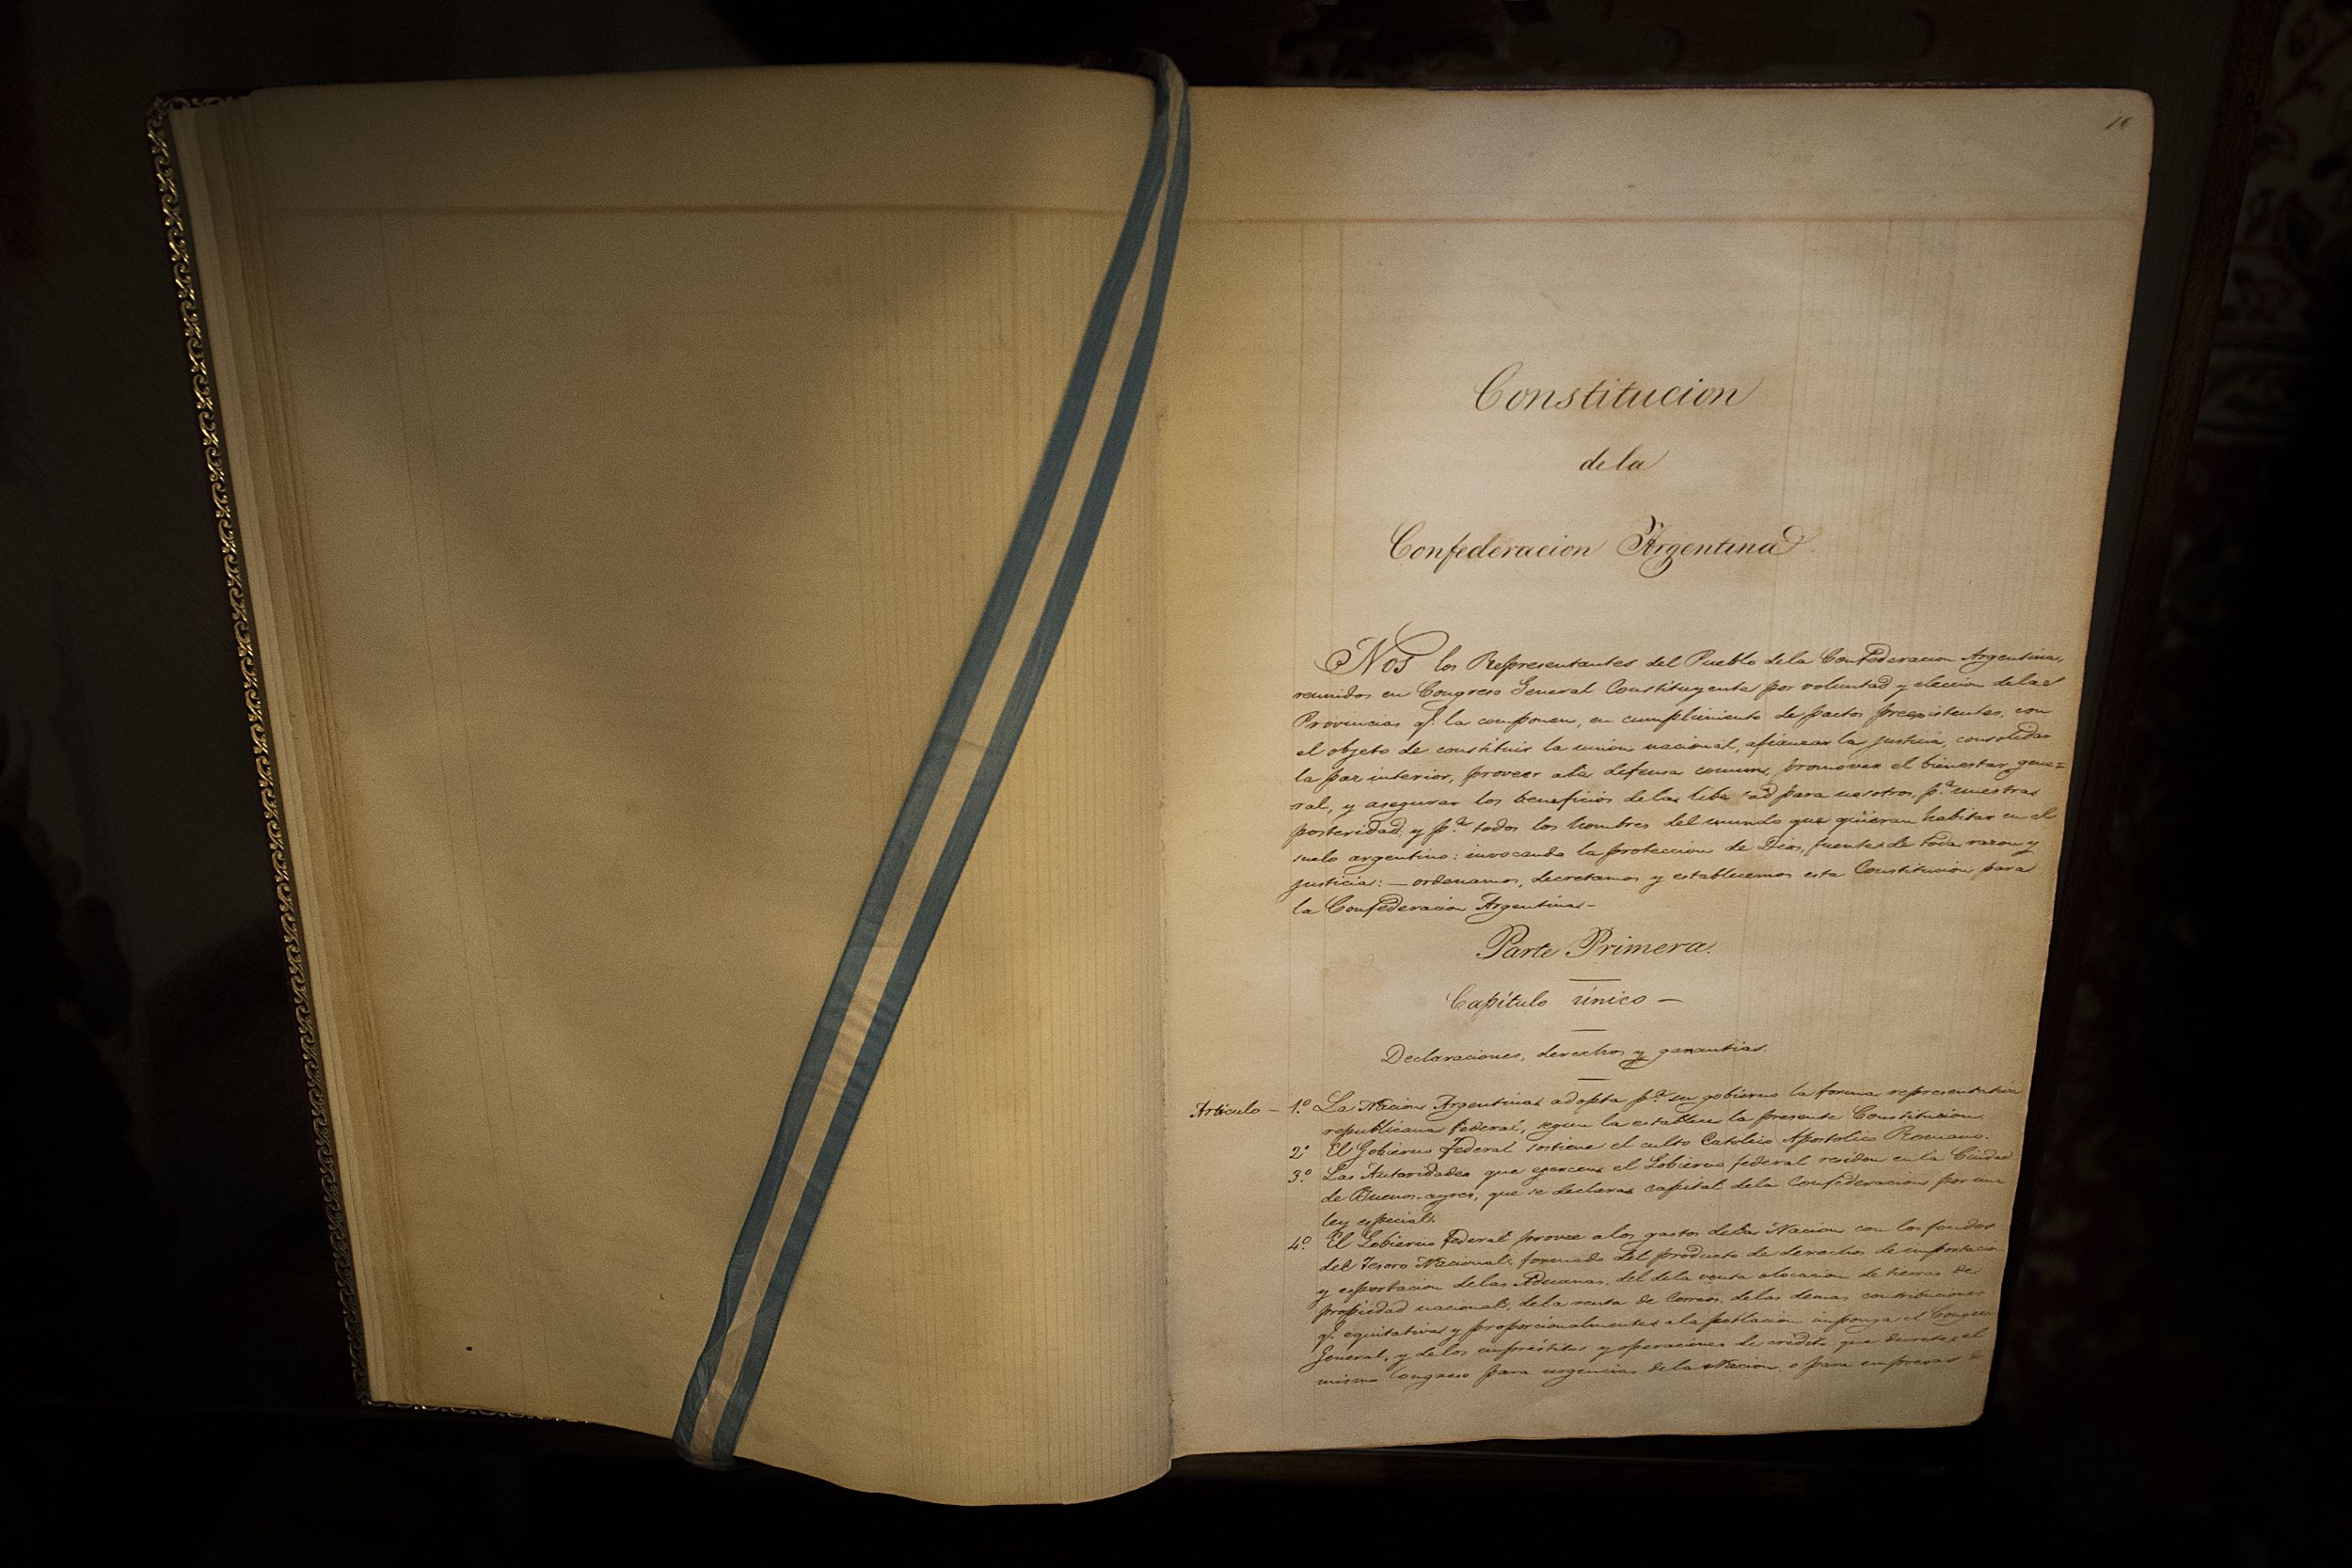 Constitucion
de la
Confederacion Argentina
Nos los Representantes del Pueblo dela Confederacion Argentina,
reunidos en Congreso General Constituyente por voluntad y eleccion delas
Provincias q.e la componen, en cumplimiento de pactos preexistentes, con
el objeto de constituir la union nacional, afianzar la justicia, consolidar
la paz interior, proveer ala defensa comun, promover el bienestar gene=
ral, y asegurar los beneficios dela libertad para nosotros, p.a nuestra
posteridad, y p.a todos los hombres del mundo que quieran habitar en el
suelo argentino: invocando la proteccion de Dios, fuente de toda razon y
justicia: — ordenamos, decretamos y establecemos esta Constitucion para
la Confederacion Argentina—
Parte Primera.
Capítulo único —
Declaraciones, derechos y garantias.
Articulo — 1.º La Nacion Argentina adopta p.a su gobierno la forma representativa
republicana federal, segun la establece la presente Constitucion.
2º El Gobierno Federal sostiene el culto Católico Apostolico Romano.
3.º Las Autoridades que ejercen el Gobierno federal residen en la Ciudad
de Buenos-ayres, que se declara capital dela Confederacion por una
ley especial.
4.º El Gobierno Federal provee alos gastos dela Nacion con los fondos
del Tesoro Nacional, formado del producto de derechos de importacion
y esportacion delas Aduanas, del dela venta o locacion de tierras de
propiedad nacional, dela renta de Correos, delas demas contribuciones
q.e equitativa y proporcionalmente ala poblacion imponga el Congreso
General, y delos empréstitos y operaciones de crédito que decrete el
mismo Congreso para urgencias dela Nacion, o para empresas de